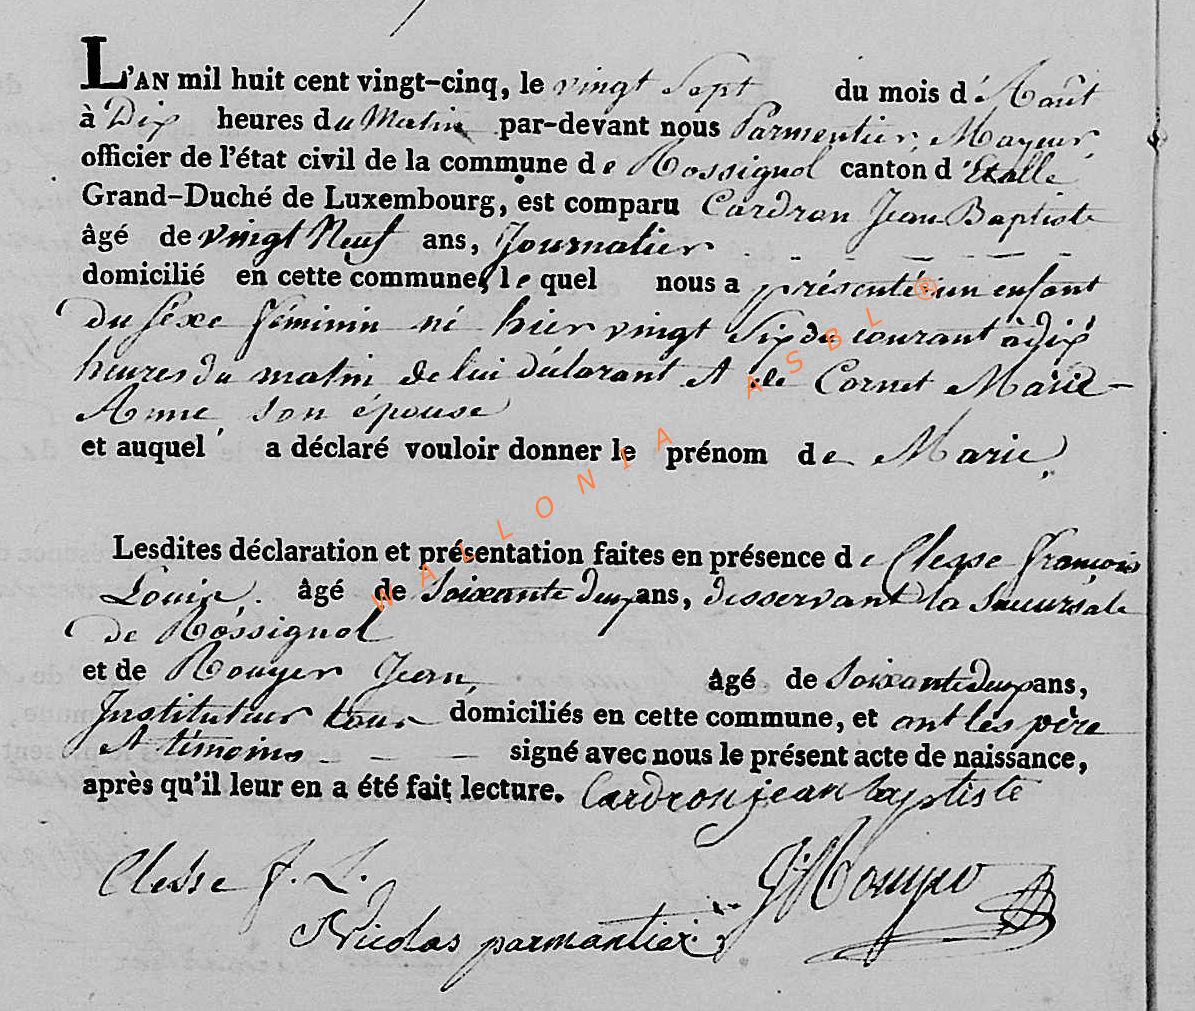 L'AN mil huit cent vingt-cinq, le vingt Sept du mois d'Août
à Dix heures du Matin par-devant nous Parmentier, Mayeur,
officier de l'état civil de la commune de Rossignol canton d'Etalle
Grand-Duché de Luxembourg, est comparu Cardron Jean Baptiste
âgé de vingt Neuf ans, Journalier
domicilié en cette commune, le quel nous a présenté un enfant
du sexe féminin né hier vingt Six du courant à dix
heures du matin de lui déclarant et de Cornet Marie
Anne, son épouse
et auquel a déclaré vouloir donner le prénom de Marie,
Lesdites déclaration et présentation faites en présence de Clesse François
Louis, âgé de Soixante deux ans, desservant la Succursale
de Rossignol
et de Rouyer Jean, âgé de Soixante deux ans,
Instituteur tous domiciliés en cette commune, et ont les père
et témoins signé avec nous le présent acte de naissance,
après qu'il leur en a été fait lecture. Cardron jean baptiste
Clesse f. L.
Nicolas parmantier
WALLONIA ASBL ®